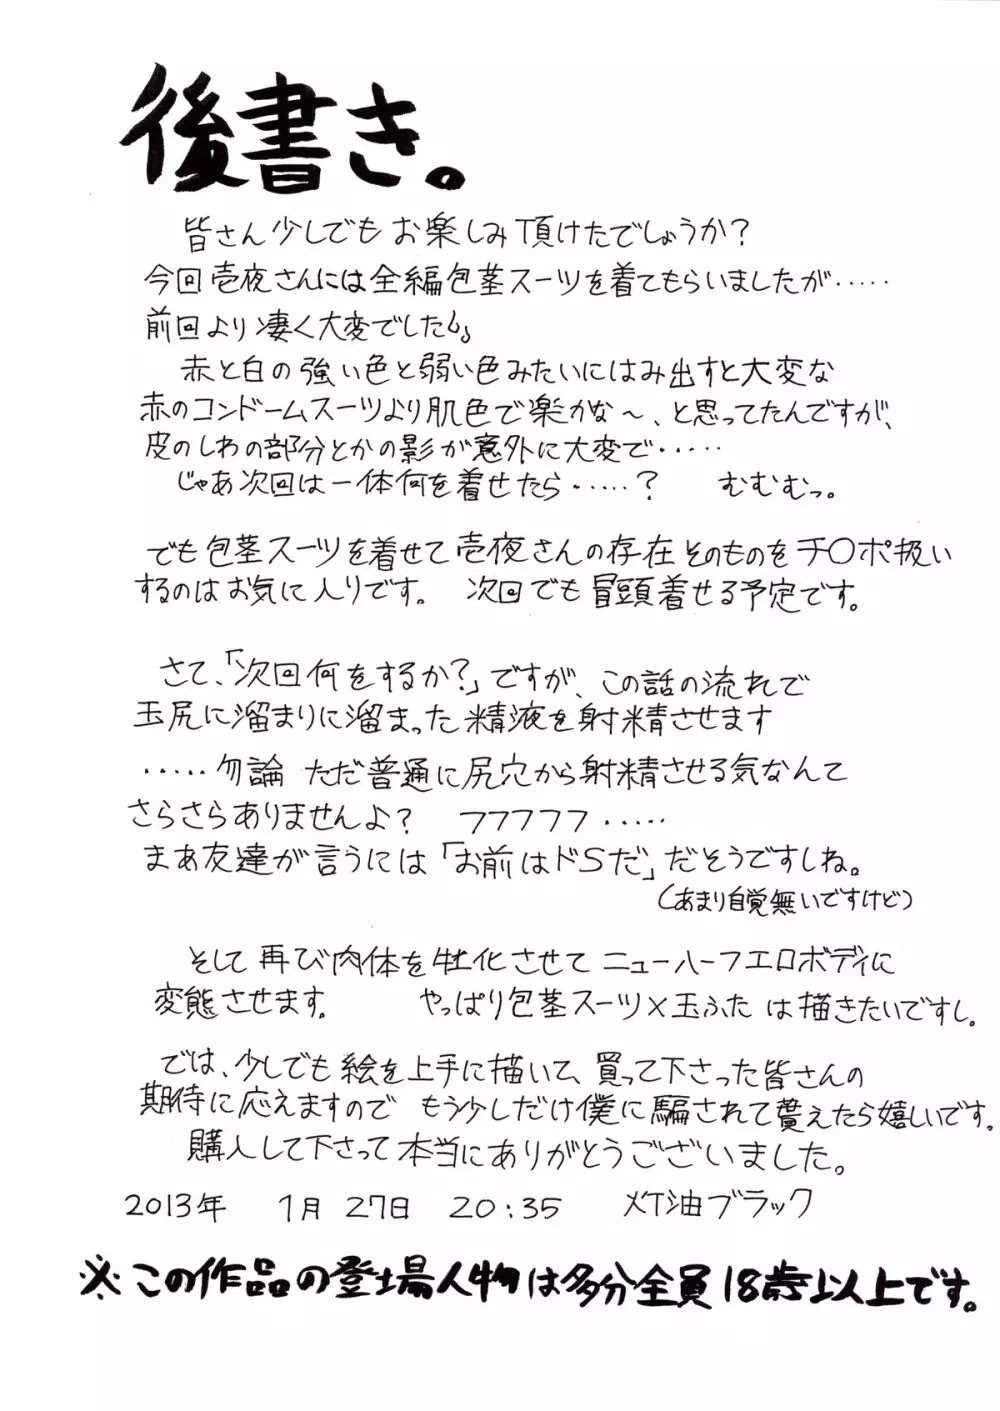 後書き。
皆さん少しでもお楽しみ頂けたでしょうか?
今回壱夜さんには全編包茎スーツを着てもらいましたが・・・・・
前回より凄く大変でした。
赤と白の強い色と弱い色みたいにはみ出すと大変な
赤のコンドームスーツより肌色で楽かな〜、と思ってたんですが、
皮のしわの部分とかの影が意外に大変で・・・・・
じゃあ次回は一体何を着せたら・・・・・? むむむっ。
でも包茎スーツを着せて壱夜さんの存在そのものをチ〇ポ扱い
するのはお気に入りです。 次回でも冒頭着せる予定です。
さて、「次回何をするか?」ですが、この話の流れで
玉尻に溜まりに溜まった精液を射精させます
・・・・・勿論 ただ普通に尻穴から射精させる気なんて
さらさらありませんよ? フフフフフ・・・・・
まあ友達が言うには「お前はドSだ」だそうですしね。
(あまり自覚無いですけど)
そして再び肉体を牡化させてニューハーフエロボディに
変態させます。 やっぱり包茎スーツ×玉ふた は描きたいですし。
では、少しでも絵を上手に描いて、買って下さった皆さんの
期待に応えますので もう少しだけ僕に騙されて貰えたら嬉しいです。
購入して下さって本当にありがとうございました。
2013年 1月27日 20:35 油ブラック
※この作品の登場人物は多分全員18歳以上です。